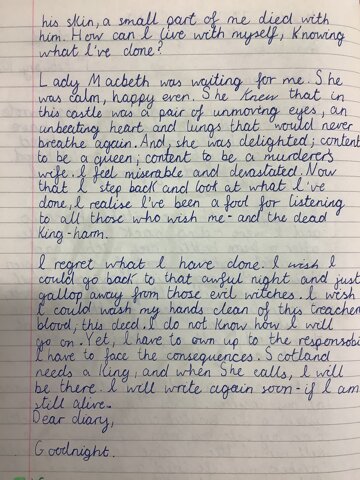 his skin, a small part of me died with
him. How can I live with myself, knowing
what I've done?
Lady Macbeth was waiting for me. She
was calm, happy even. She knew that in
this castle was a pair of unmoving eyes, an
unbeating heart and lungs that would never
breathe again. And, she was delighted; content
to be a queen; content to be a murderer's
wife. I feel miserable and devastated. Now
that I step back and look at what I've
done, I realise I've been a fool for listening
to all those who wish me - and the dead
King - harm.
I regret what I have done. I wish I
could go back to that awful night and just
gallop away from those evil witches. I wish
I could wash my hands clean of this treacher
blood; this deed. I do not know how I will
go on. Yet, I have to own up to the responsabi
I have to face the consequences. Scotland
needs a King, and when She calls, I will
be there. I will write again soon - if I am
still alive.
Dear diary,
Goodnight.